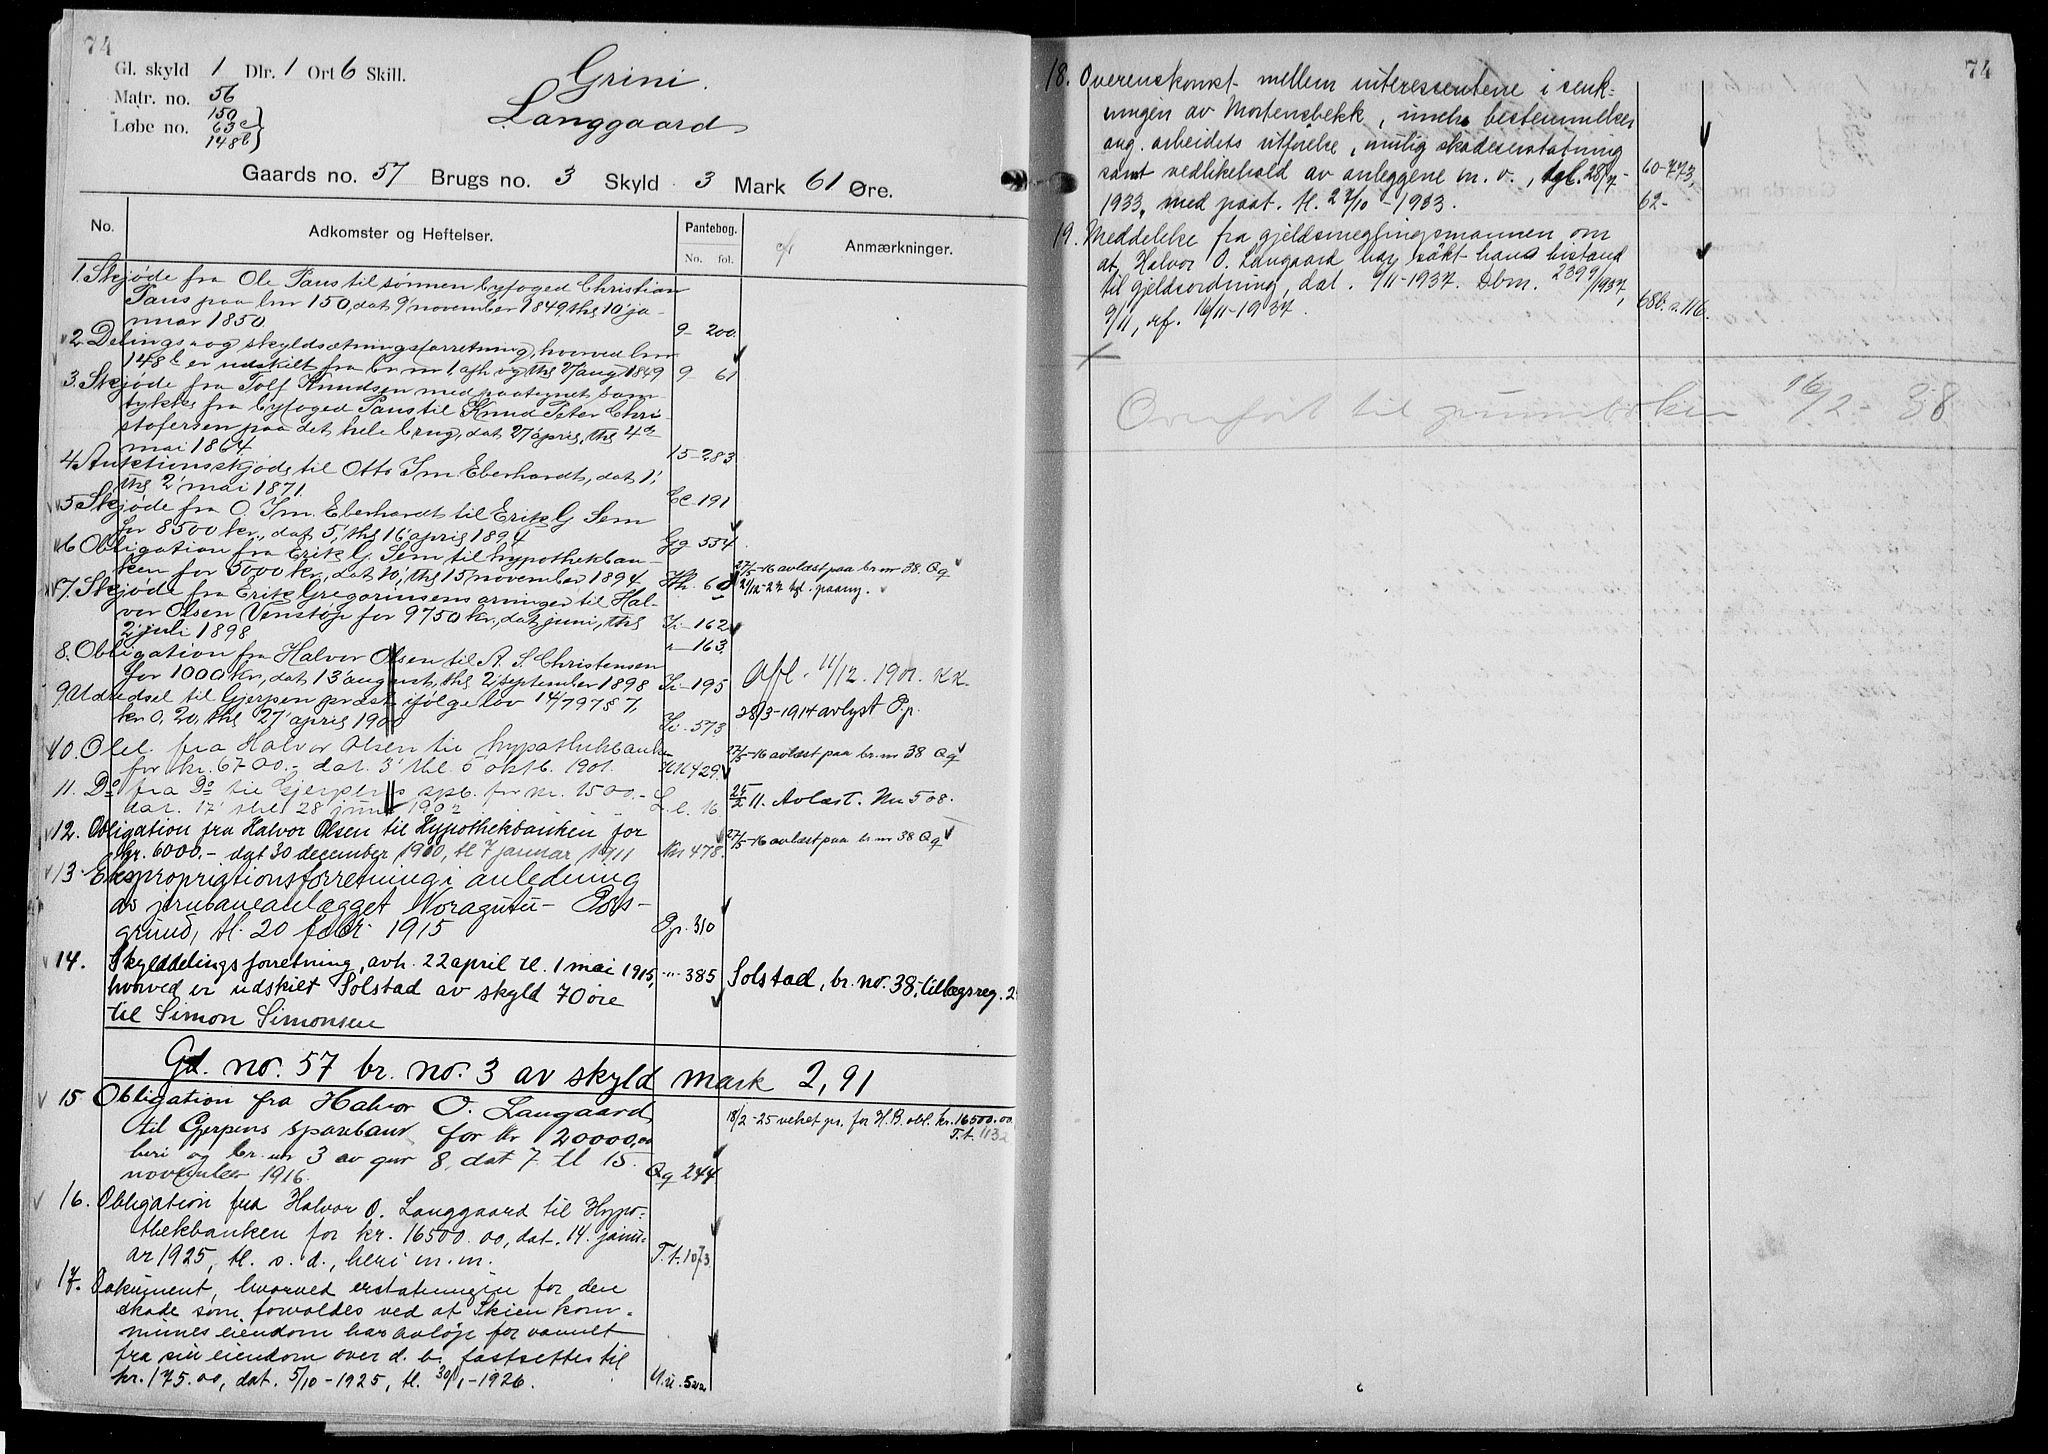 74
Gl. skyld 1 Dlr. 1 Ort 6 Skill.
Grini.
Langgaard
Matr. no. 56
Løbe no. 150
63c
148b
Gaards no. 57 Brugs no. 3 Skyld 3 Mark 61 Øre.
No. Adkomster og Heftelser. Pantebog. Anmærkninger.
No. fol.
1. Skjøde fra Ole Paus til sønnen byfoged Christian
Paus paa lnr 150, dat 9' november 1849, thl 10' ja-
nuar 1850. 9- 200.
2. Delings- og skyldsætningsforretning, hvorved lnr
148b er udskilt fra br nr 1, afh og thl 27 aug 1849 9 61
3. Skjøde fra Tolf Knudsen med paategnet sam
tykke fra byfoged Paus til Knud Peter Chri
stofersen paa det hele brug, dat 27' april, thl 4de
mai 1864 15-283
4. Auktionsskjøde til Otto Im. Eberhardt, dat 1',
thl 2' mai 1871. Cc 191
5. Skjøde fra O. Im. Eberhardt til Erik G Sem
for 8500 kr., dat 5', thl 16' april 1894 Gg 534
6 Obligation fra Erik G. Sem til hypothekban-
ken for 5000 kr., dat 10', thl 15 november 1894 Hh. 60 27/5-16 avlæst paa br nr 38. Qq
7. Skjøde fra Erik Gregoriusens arvinger til Hal-
vor Olsen Venstøp for 9750 kr., dat juni, thl
2' juli 1898 Ii-162
"-163.
8. Obligation fra Halvor Olsen til A. S. Christensen
for 1000 kr, dat 13' august, thl 2' september 1898 Ii-195 Afl. 11/12. 1901. KK.
9. Udredsel til Gjerpen præst ifølge lov 14/7 97 § 7,
kr 0,20, thl 27' april 1900 Ii. 573 28/3-1914 avlyst P.p.
10. Obl. fra Halvor Olsen til hypothekbanken
for kr. 6700.- dat. 3' thl. 5 oktb. 1901. KK 429. 27/5-16 avlæst paa br. nr 38 Qq
11. Do fra Do til Gjerpens spb. for kr. 1500.-
dat. 17' thl 28 juni 1902 L.l. 16 25/2 11. Avlæst. Nn 508.
12. Obligation fra Halvor Olsen til Hypothekbanken for
kr. 6000.- dat 30 december 1910, tl 7 januar 1911 Nn 478. 27/5-16 avlæst paa br. nr 38 Qq
13 Ekspropriationsforretning i anledning
av jernbaneanlægget Nordagutu- Pors-
grund, tl. 20 febr. 1915 Pp. 310
14. Skylddelingsforretning, avh. 22 april tl. 1 mai 1915, -"- 385 Solstad, br. no. 38, tillægsreg. 2
hvorved er udskilt Solstad av skyld 70 øre
til Simon Simonsen
Gd. no. 57 br. no. 3 av skyld mark 2,91
15 Obligation fra Halvor O. Langaard
til Gjerpens sparebank for kr 20000,00 18/2-25 veket pr. for H.B. obl. kr. 16500.00
T.t. 1132
heri og br. nr 3 av gnr 8, dat 7. tl 15.
november 1916. Qq 244
16. Obligation fra Halvor O. Langgaard til Hypo-
thekbanken for kr. 16500.00, dat. 14. janu-
ar 1925, tl. s. d., heri m. m. T.t. 1073
17. Dokument, hvorved erstatningen for den
skade som forvoldes ved at Skien kom-
munes eiendom har avløp for vannet
fra sin eiendom over d. b. fastsettes til
kr. 175.00, dat. 5/10-1925, tl. 30/1-1926. U.u. 522
74
18. Overenskomst mellem interessentene i senk-
ningen av Mortensbekk, inneh. bestemmelser
ang. arbeidets utførelse, mulig skadeserstatning
samt vedlikehold av anleggene m. v., tgl. 28/7- 60-773,
1933, med paat. tl. 27/10-1933. 62-
19. Meddelelse fra gjeldsmeglingsmannen om
at Halvor O. Langaard har søkt hans bistand
til gjeldsordning, dat. 9/11-1937. Dbnr. 2399/1937,
9/11, rf. 16/11-1937. 68b. s. 116.
Overført til grunnboken 16/2-38